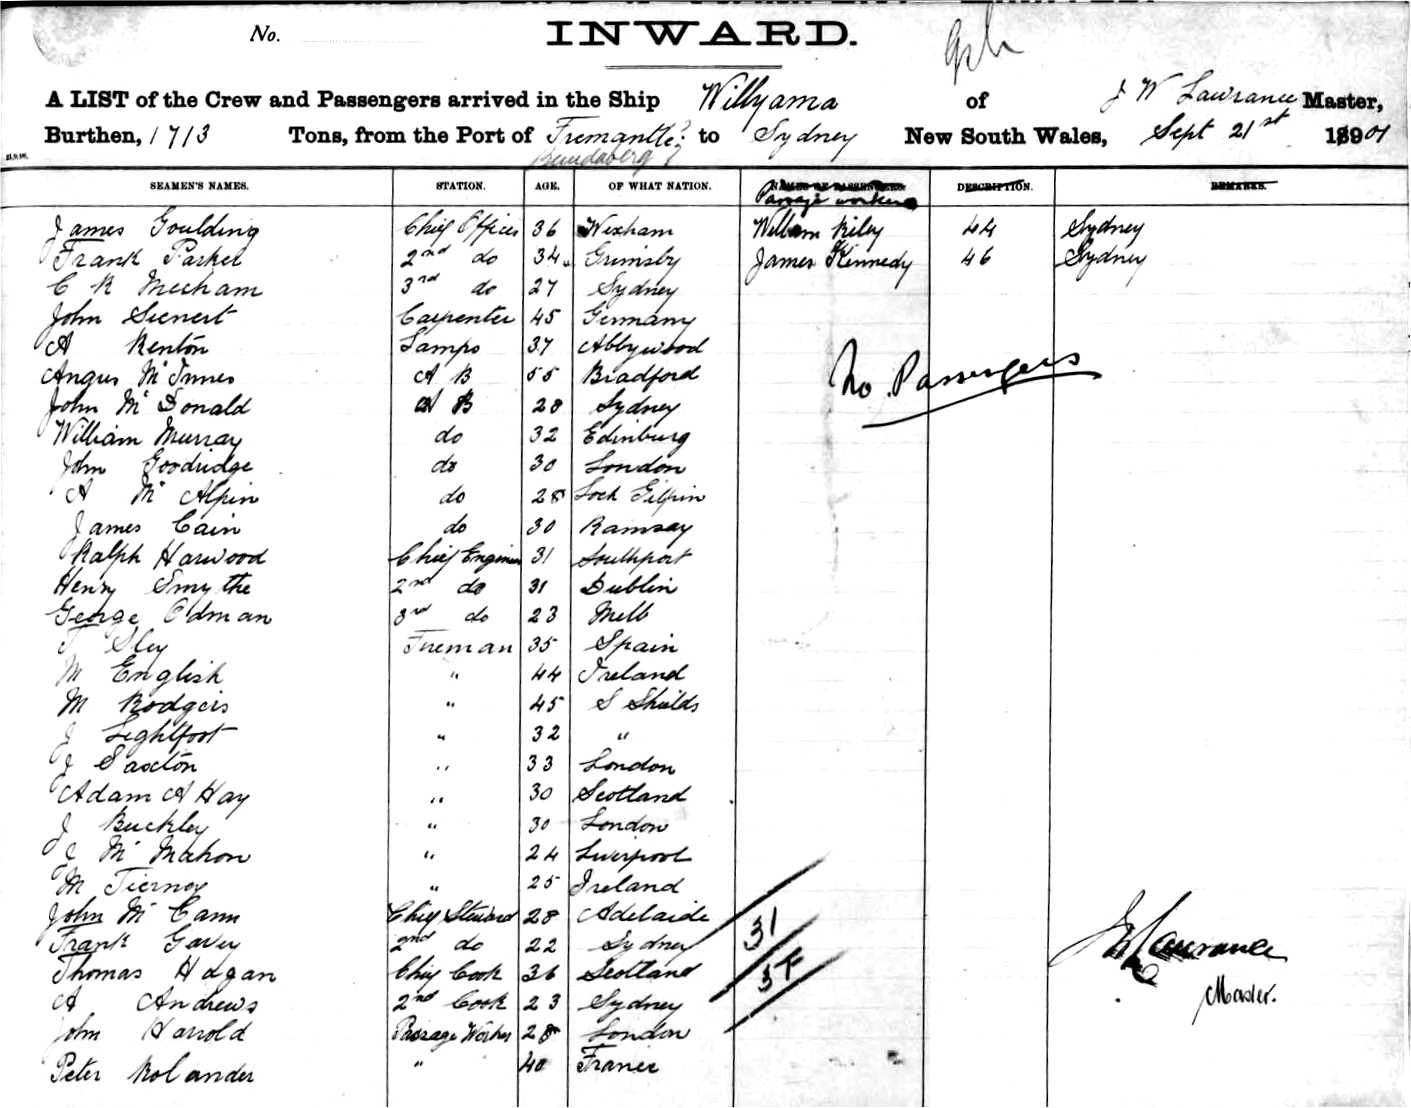 No.
INWARD.
A LIST of the Crew and Passengers arrived in the Ship Willyama of J W Lawrance Master,
Burthen, 1713 Tons, from the Port of Fremantle to Sydney New South Wales, Sept 21st 1901
Bundaberg
SEAMEN'S NAMES. STATION. AGE. OF WHAT NATION. NAMES OF PASSENGERS DESCRIPTION. REMARKS.
Passage workers
James Goulding Chief Officer 36 Wexham William Riley 44 Sydney
Frank Parker 2nd do 34 Grimsby James Kennedy 46 Sydney
C R Mecham 3rd do 27 Sydney
John Sienert Carpenter 45 Germany
A Renton Lamps 37 Abbywood
Angus McInnes A B 55 Bradford
No Passengers
John McDonald A B 28 Sydney
William Murray do 32 Edinburg
John Goodridge do 30 London
A McAlpin do 28 Lock Gilpin
James Cain do 30 Ramsay
Ralph Harwood Chief Engineer 31 Southport
Henry Smythe 2nd do 31 Dublin
George Odman 3rd do 23 Melb
T Sley Fireman 35 Spain
M English " 44 Ireland
M Rodgers " 45 S Shields
J Lightfoot " 32 "
J Saxton " 33 London
Adam A Hay " 30 Scotland
J Buckley " 30 London
J McMahon " 24 Liverpool
M Tierney " 25 Ireland
John McCann Chief Steward 28 Adelaide
31
Frank Gavey 2nd do 22 Sydney
J W Lawrance
Thomas Hagan Chief Cook 36 Scotland
Master.
A Andrews 2nd Cook 23 Sydney
John Harrold Passage Worker 28 London
Peter Rolander " 40 France